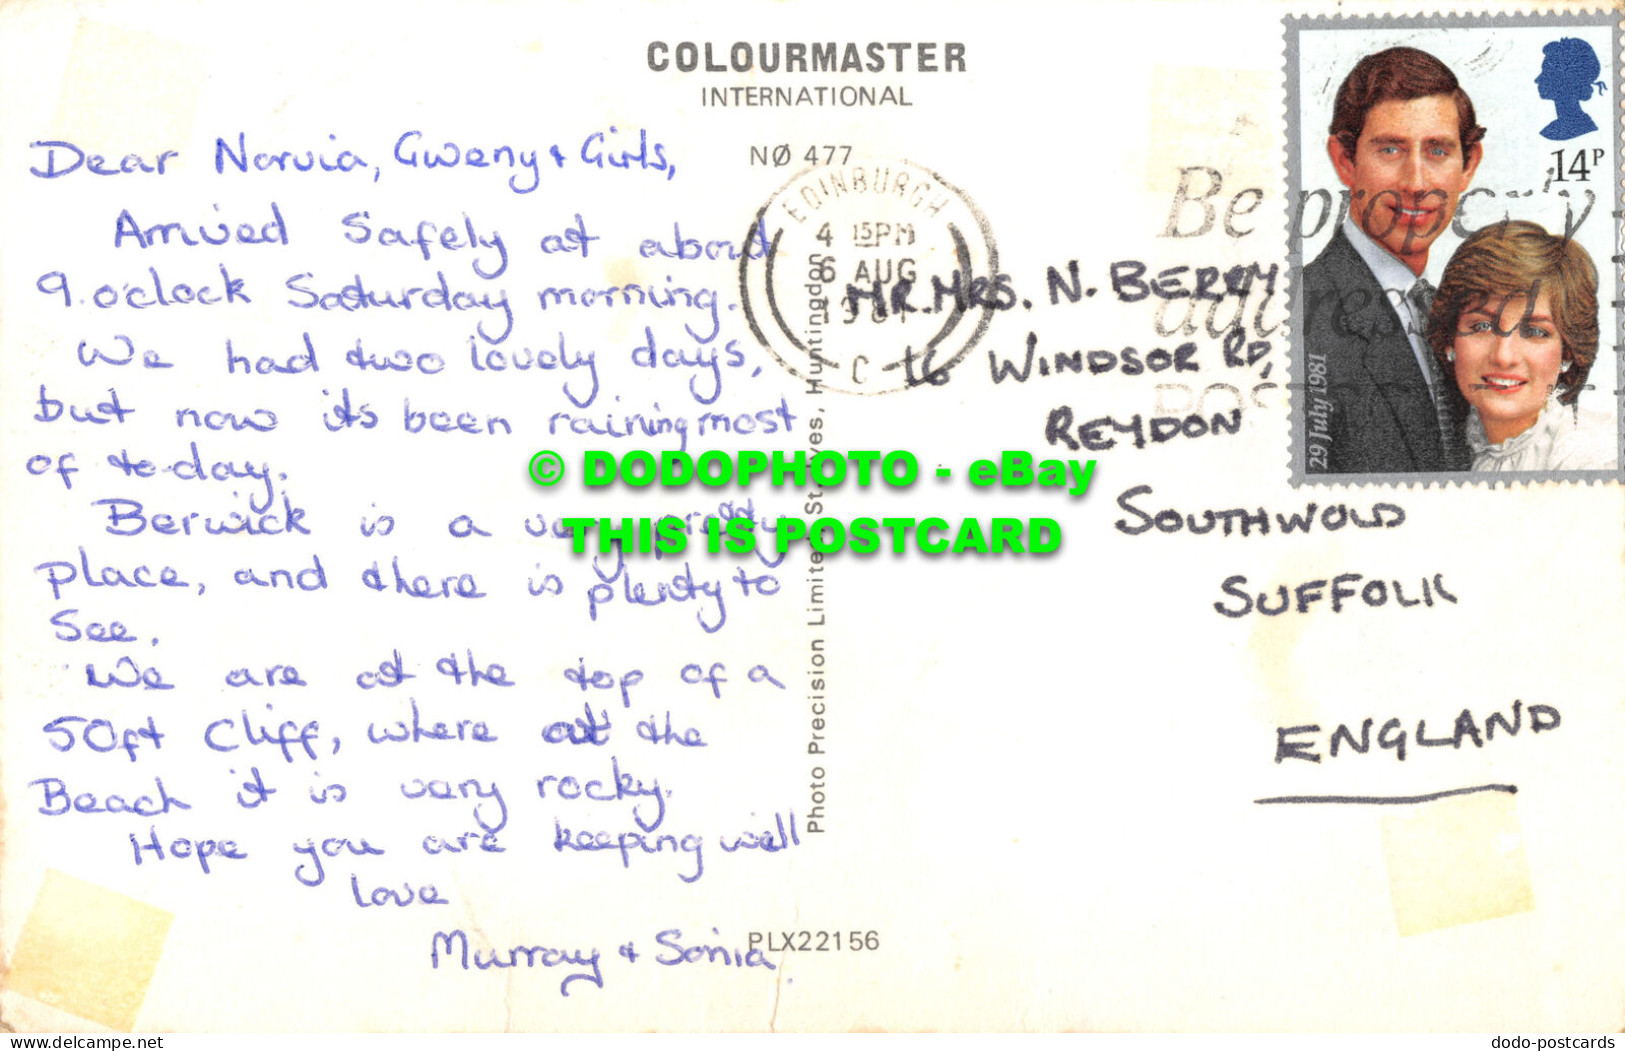 COLOURMASTER
INTERNATIONAL
NØ 477
Dear Norvia, Gweny + Girls,
Arrived Safely at about
9.o'clock Saturday morning.
We had two lovely days,
but now its been raining most
of to-day.
Berwick is a very pretty
place, and there is plenty to
See.
We are at the top of a
50ft Cliff, where at the
Beach it is very rocky.
Hope you are keeping well
Love
Murray + Sonia.
PLX22156
Photo Precision Limited, St. Ives, Huntingdon
EDINBURGH
4 15PM
6 AUG
1981
C
Be properly
addressed
POSTCODE
14P
29 July 1981
MR. MRS. N. BERRY
16 WINDSOR RD,
REYDON
SOUTHWOLD
SUFFOLK
ENGLAND
© DODOPHOTO - eBay
THIS IS POSTCARD
delcampe.net
dodo-postcards